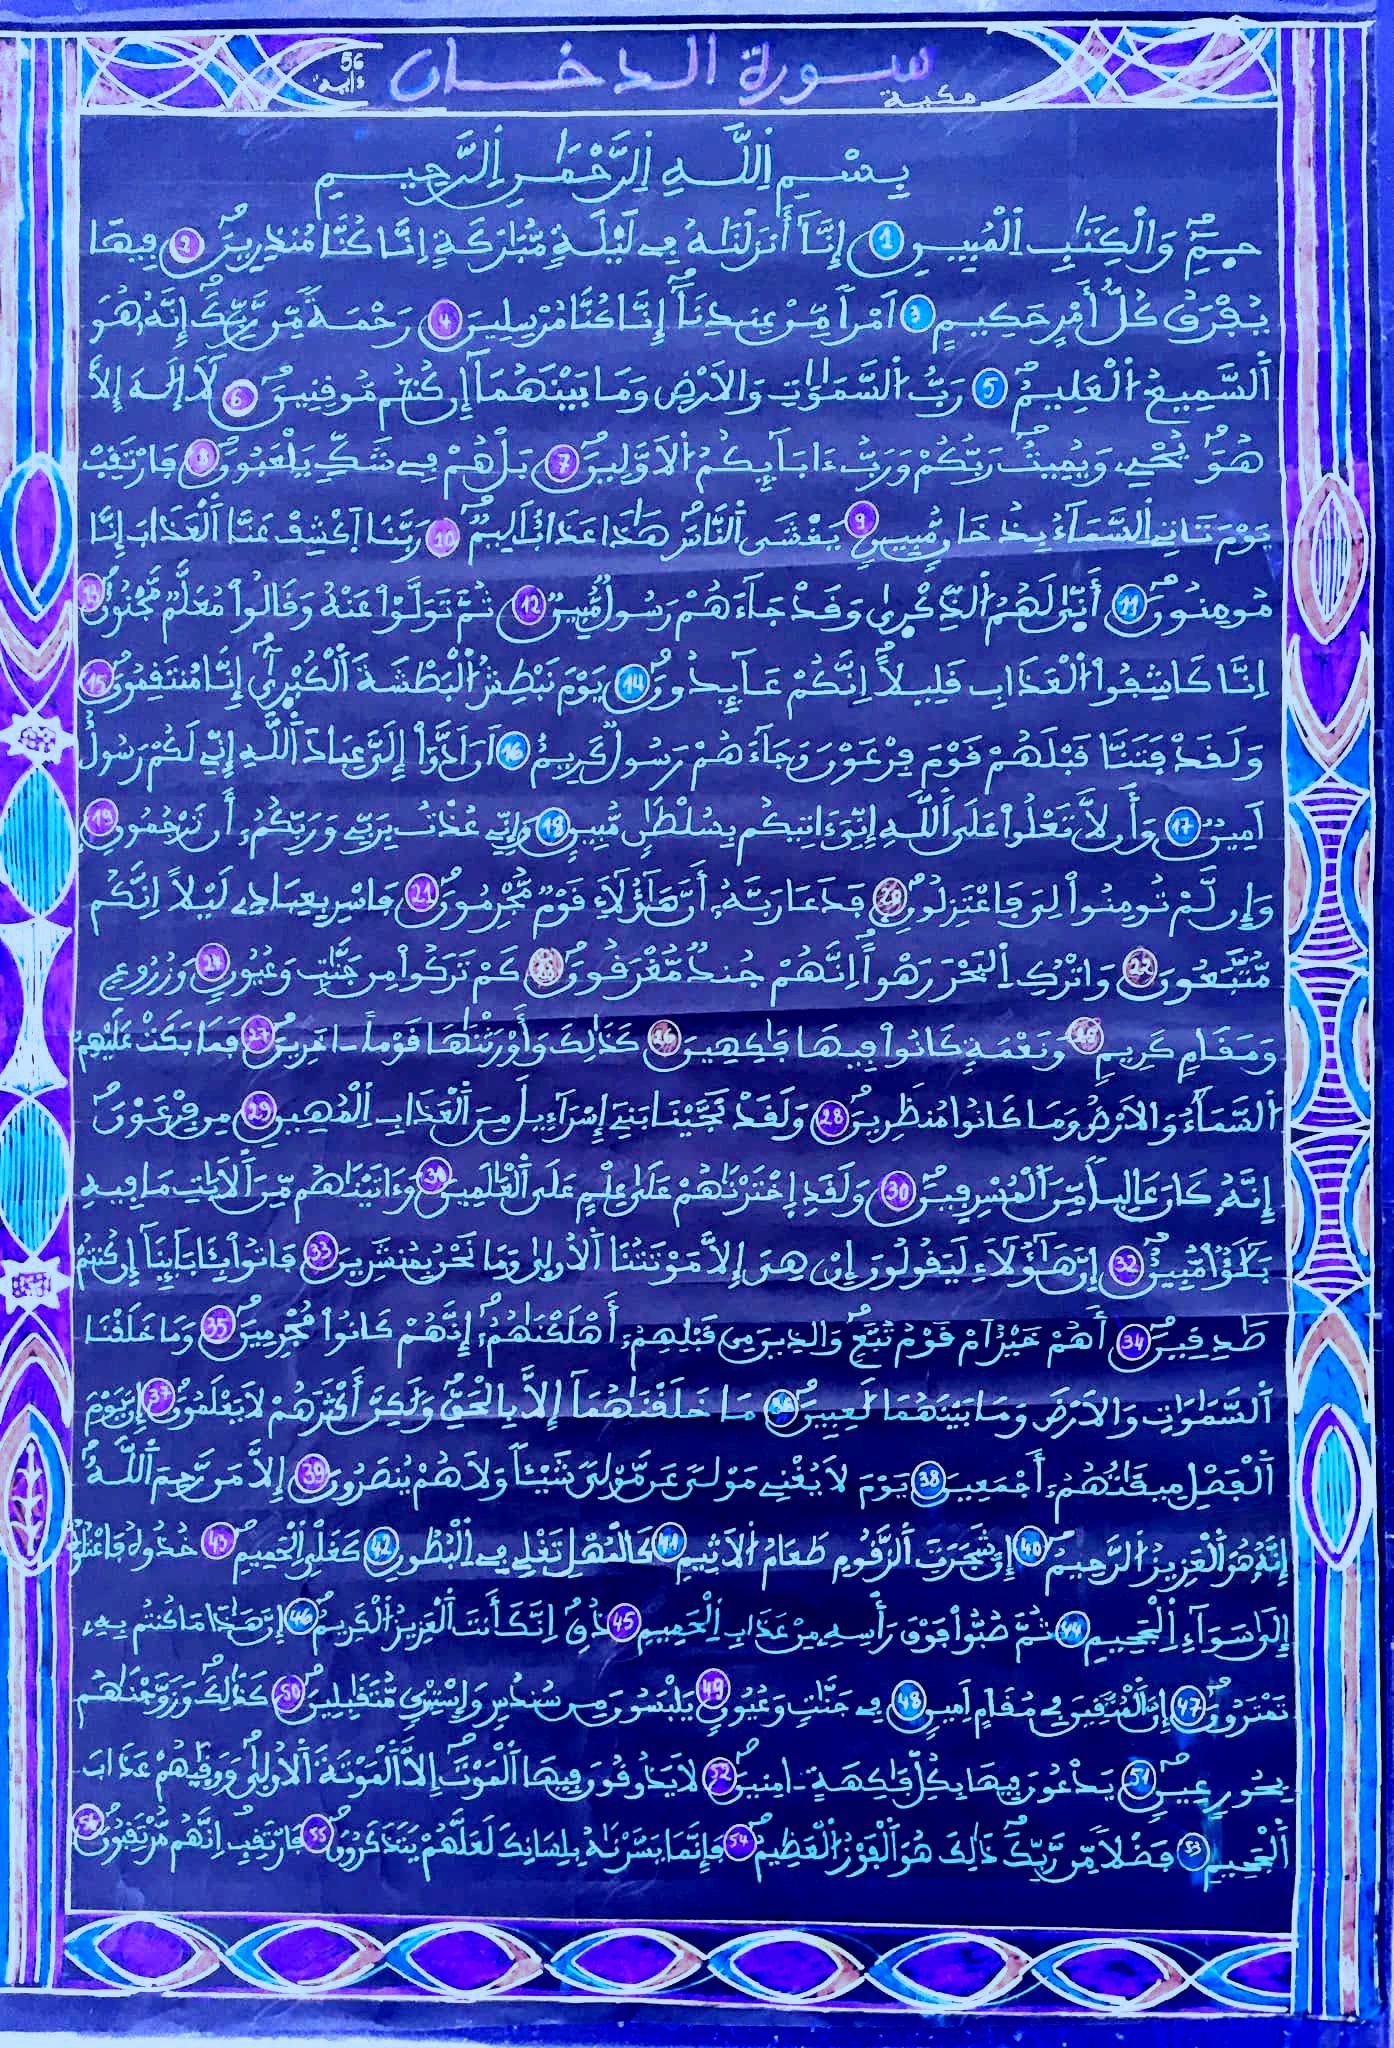 سورة الدخان
مكية
56 ءاية
بِسْمِ اِللَّهِ اِلرَّحْمَٰنِ اِلرَّحِيمِ
حمِٓ وَالْكِتَٰبِ اِلْمُبِينِ 1 إِنَّآ أَنزَلْنَٰهُ فِے لَيْلَةٖ مُّبَٰرَكَةٍ اِنَّا كُنَّا مُنذِرِينَ 2 فِيهَا
يُفْرَقُ كُلُّ أَمْرٍ حَكِيمٍ 3 اَمْراٗ مِّنْ عِندِنَآ إِنَّا كُنَّا مُرْسِلِينَ 4 رَحْمَةٗ مِّن رَّبِّكَ إِنَّهُۥ هُوَ
اَ۬لسَّمِيعُ اُ۬لْعَلِيمُ 5 رَبُّ اُ۬لسَّمَٰوَٰتِ وَالَارْضِ وَمَا بَيْنَهُمَآ إِن كُنتُم مُّوقِنِينَ 6 لَآ إِلَٰهَ إِلَّا
هُوَ يُحْيِۦ وَيُمِيتُ رَبُّكُمْ وَرَبُّ ءَابَآئِكُمُ اُ۬لَاوَّلِينَ 7 بَلْ هُمْ فِے شَكّٖ يَلْعَبُونَ 8 فَارْتَقِبْ
يَوْمَ تَاتِے اِ۬لسَّمَآءُ بِدُخَانٖ مُّبِينٖ 9 يَغْشَى اَ۬لنَّاسَ هَٰذَا عَذَابٌ اَلِيمٌ 10 رَّبَّنَا اَ۪كْشِفْ عَنَّا اَ۬لْعَذَابَ إِنَّا
مُومِنُونَ 11 أَنّ۪يٰ لَهُمُ اُ۬لذِّكْر۪يٰ وَقَدْ جَآءَهُمْ رَسُولٞ مُّبِينٞ 12 ثُمَّ تَوَلَّوْاْ عَنْهُ وَقَالُواْ مُعَلَّمٞ مَّجْنُونٌ 13
اِنَّا كَاشِفُواْ اُ۬لْعَذَابِ قَلِيلاً اِنَّكُمْ عَآئِدُونَ 14 يَوْمَ نَبْطِشُ اُ۬لْبَطْشَةَ اَ۬لْكُبْر۪يٰٓ إِنَّا مُنتَقِمُونَ 15
وَلَقَدْ فَتَنَّا قَبْلَهُمْ قَوْمَ فِرْعَوْنَ وَجَآءَهُمْ رَسُولٞ كَرِيمٌ 16 اَنَ اَدُّوٓاْ إِلَيَّ عِبَادَ اَ۬للَّهِ إِنِّے لَكُمْ رَسُولٌ
اَمِينٞ 17 وَأَن لَّا تَعْلُواْ عَلَى اَ۬للَّهِ إِنِّيَ ءَاتِيكُم بِسُلْطَٰنٖ مُّبِينٖ 18 وَإِنِّے عُذْتُ بِرَبِّے وَرَبِّكُمُۥٓ أَن تَرْجُمُونِ 19
وَإِن لَّمْ تُومِنُواْ لِيَ فَاعْتَزِلُونِ 20 فَدَعَا رَبَّهُۥٓ أَنَّ هَٰٓؤُلَآءِ قَوْمٞ مُّجْرِمُونَ 21 فَاسْرِ بِعِبَادِے لَيْلاً اِنَّكُم
مُّتَّبَعُونَ 22 وَاتْرُكِ اِ۬لْبَحْرَ رَهْواً اِنَّهُمْ جُندٞ مُّغْرَقُونَ 23 كَمْ تَرَكُواْ مِن جَنَّٰتٖ وَعُيُونٖ 24 وَزُرُوعٖ
وَمَقَامٖ كَرِيمٖ 25 وَنَعْمَةٖ كَانُواْ فِيهَا فَٰكِهِينَ 26 كَذَٰلِكَ وَأَوْرَثْنَٰهَا قَوْماً اٰخَرِينَ 27 فَمَا بَكَتْ عَلَيْهِمُ
اُ۬لسَّمَآءُ وَالَارْضُ وَمَا كَانُواْ مُنظَرِينَ 28 وَلَقَدْ نَجَّيْنَا بَنِےٓ إِسْرَآءِيلَ مِنَ اَ۬لْعَذَابِ اِ۬لْمُهِينِ 29 مِن فِرْعَوْنَ
إِنَّهُۥ كَانَ عَالِياٗ مِّنَ اَ۬لْمُسْرِفِينَ 30 وَلَقَدِ اِ۪خْتَرْنَٰهُمْ عَلَىٰ عِلْمٍ عَلَى اَ۬لْعَٰلَمِينَ وَءَاتَيْنَٰهُم مِّنَ اَ۬لَايَٰتِ مَا فِيهِ
بَلَٰٓؤٞاْ مُّبِينٌ 32 إِنَّ هَٰٓؤُلَآءِ لَيَقُولُونَ إِنْ هِيَ إِلَّا مَوْتَتُنَا اَ۬لُاول۪يٰ وَمَا نَحْنُ بِمُنشَرِينَ 33 فَاتُواْ بِـَٔابَآئِنَآ إِن كُنتُمْ
صَٰدِقِينَ 34 أَهُمْ خَيْرٌ اَمْ قَوْمُ تُبَّعٖ وَالذِينَ مِن قَبْلِهِمُۥٓ أَهْلَكْنَٰهُمُۥٓ إِنَّهُمْ كَانُواْ مُجْرِمِينَ 35 وَمَا خَلَقْنَا
اَ۬لسَّمَٰوَٰتِ وَالَارْضَ وَمَا بَيْنَهُمَا لَٰعِبِينَ 36 مَا خَلَقْنَٰهُمَآ إِلَّا بِالْحَقِّ وَلَٰكِنَّ أَكْثَرَهُمْ لَا يَعْلَمُونَ 37 إِنَّ يَوْمَ
اَ۬لْفَصْلِ مِيقَٰتُهُمُۥٓ أَجْمَعِينَ 38 يَوْمَ لَا يُغْنِے مَوْلىً عَن مَّوْلىٗ شَيْـٔاٗ وَلَا هُمْ يُنصَرُونَ 39 إِلَّا مَن رَّحِمَ اَ۬للَّهُ
إِنَّهُۥ هُوَ اَ۬لْعَزِيزُ اُ۬لرَّحِيمُ 40 إِنَّ شَجَرَتَ اَ۬لزَّقُّومِ طَعَامُ اُ۬لَاثِيمِ 41 كَالْمُهْلِ تَغْلِے فِے اِ۬لْبُطُونِ 42 كَغَلْيِ اِ۬لْحَمِيمِ 43 خُذُوهُ فَاعْتُلُوهُ
إِلَىٰ سَوَآءِ اِ۬لْجَحِيمِ 44 ثُمَّ صُبُّواْ فَوْقَ رَأْسِهِۦ مِنْ عَذَابِ اِ۬لْحَمِيمِ 45 ذُقِ اِنَّكَ أَنتَ اَ۬لْعَزِيزُ اُ۬لْكَرِيمُ 46 إِنَّ هَٰذَا مَا كُنتُم بِهِۦ
تَمْتَرُونَ 47 إِنَّ اَ۬لْمُتَّقِينَ فِے مُقَامٍ اَمِينٖ 48 فِے جَنَّٰتٖ وَعُيُونٖ 49 يَلْبَسُونَ مِن سُندُسٖ وَإِسْتَبْرَقٖ مُّتَقَٰبِلِينَ 50 كَذَٰلِكَ وَزَوَّجْنَٰهُم
بِحُورٍ عِينٖ 51 يَدْعُونَ فِيهَا بِكُلِّ فَٰكِهَةٍ اٰمِنِينَ 52 لَا يَذُوقُونَ فِيهَا اَ۬لْمَوْتَ إِلَّا اَ۬لْمَوْتَةَ اَ۬لُاول۪يٰ وَوَقَيٰهُمْ عَذَابَ
اَ۬لْجَحِيمِ 53 فَضْلاٗ مِّن رَّبِّكَ ذَٰلِكَ هُوَ اَ۬لْفَوْزُ اُ۬لْعَظِيمُ 54 فَإِنَّمَا يَسَّرْنَٰهُ بِلِسَانِكَ لَعَلَّهُمْ يَتَذَكَّرُونَ 55 فَارْتَقِبِ اِنَّهُم مُّرْتَقِبُونَ 56